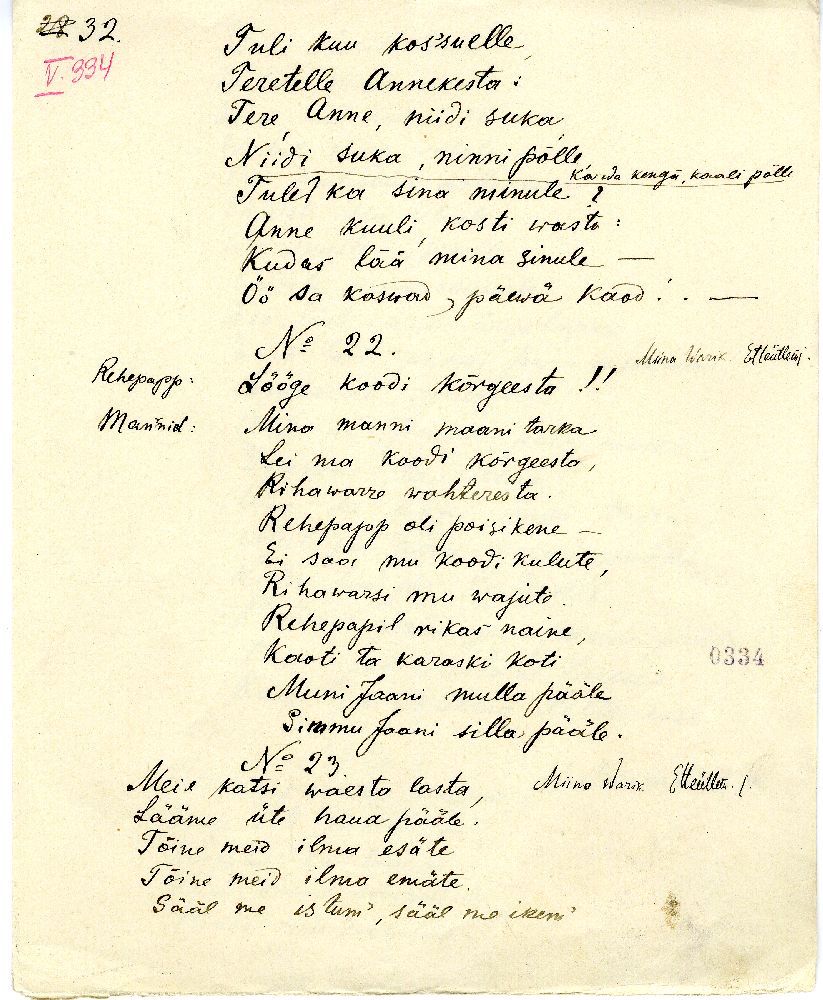 32.
V. 334
Tuli kuu kos'suelle,
Teretelle Annekesta:
Tere, Anne, niidi suka,
Niidi suka, ninni põlle,
Kawa kenga, kaali põlle
Tuled ka sina minule?
Anne kuuli, kosti wasta:
Kudas lää mina sinule —
Öö sa koswad, päewä kaod! . —
No 22.
Miina Warik. Etteütleij.
Rehepapp: Lööge koodi kõrgeesta!!
Mannid: Mina manni maani tarka
Lei ma koodi kõrgeesta,
Rihawarre wahteresta.
Rehepapp oli poisikene —
Ei saa mu koodi kulute,
Rihawarsi mu wajute.
Rehepapil rikas naine,
Kaoti ta karaski koti
Muni Jaani mulla pääle
Simmu Jaani silla pääle.
0334
No 23
Meie katsi waesta lasta, Miina Warik Etteütlev.
Lääme üte haua pääle.
Tõine meid ilma esäte
Tõine meid ilma emäte.
Sääl me istuni, sääl me ikeni